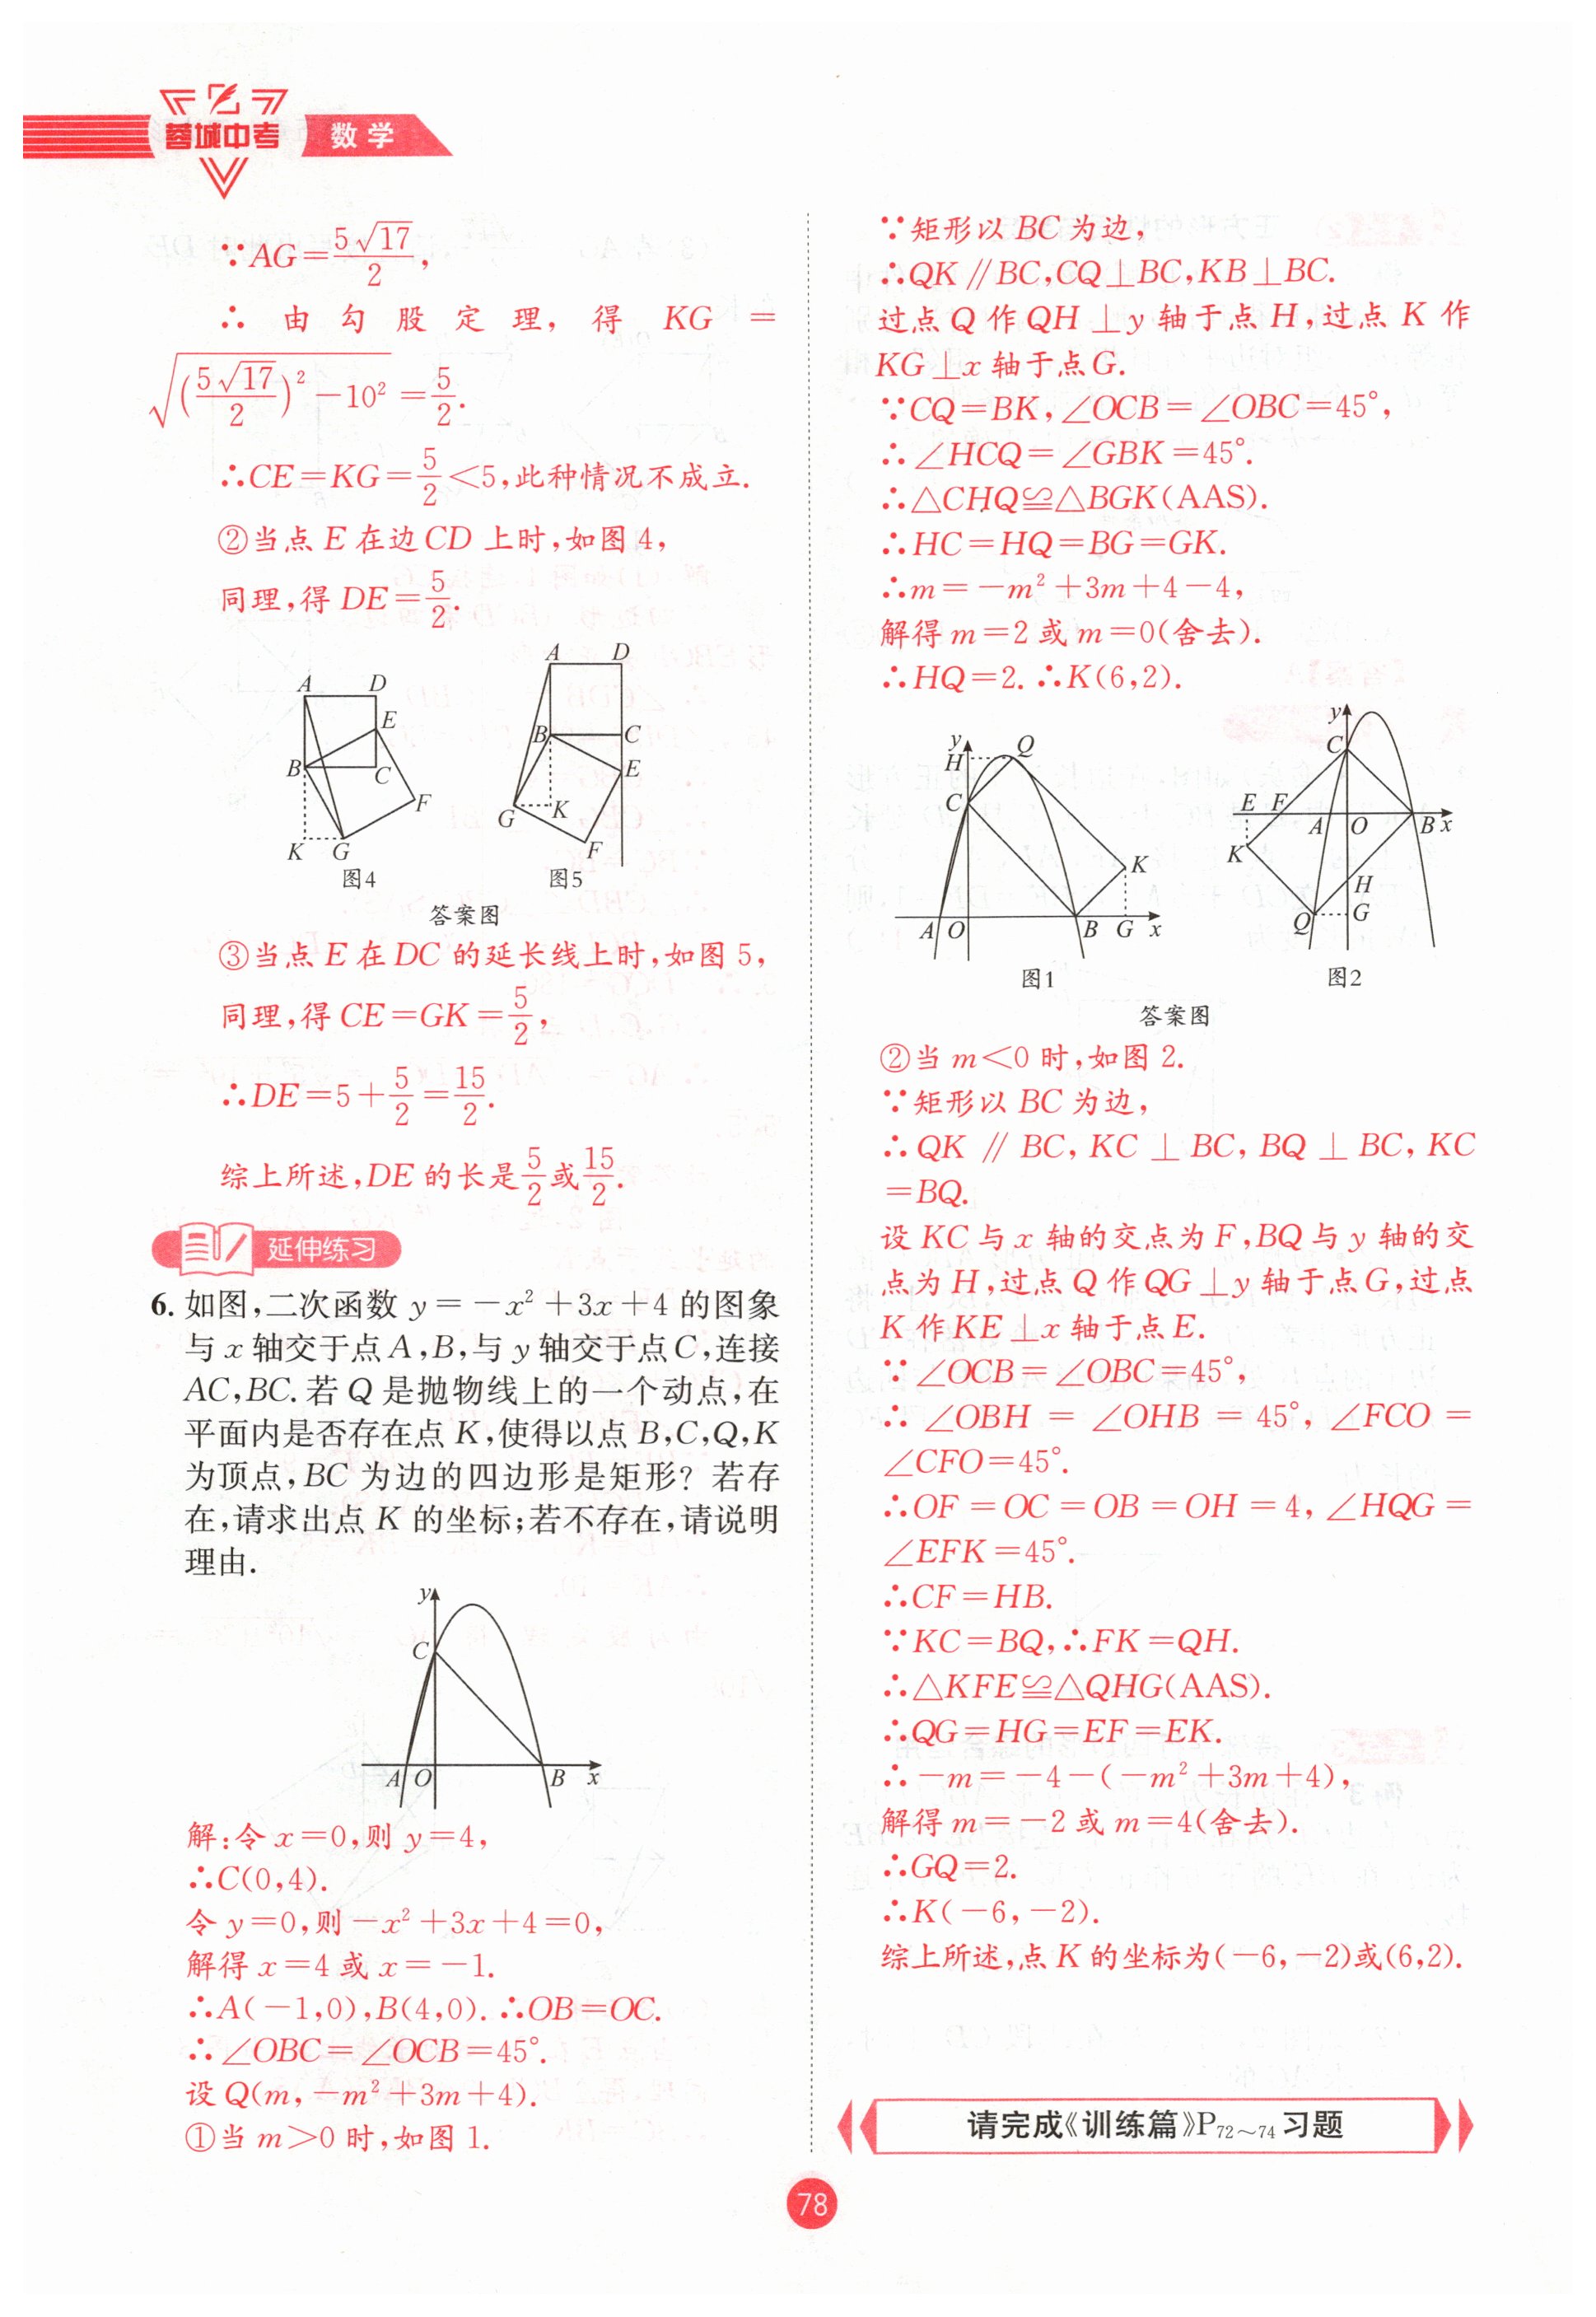 蓉城中考 数学
∵AG=5√17/2,
∴ 由 勾 股 定 理, 得 KG =
√((5√17/2)²-10²)=5/2.
∴CE=KG=5/2<5,此种情况不成立.
②当点 E 在边 CD 上时,如图 4,
同理,得 DE=5/2.
A D E B C F K G
图4
A D B C E G K F
图5
答案图
③当点 E 在 DC 的延长线上时,如图 5,
同理,得 CE=GK=5/2,
∴DE=5+5/2=15/2.
综上所述,DE 的长是5/2或15/2.
延伸练习
6. 如图,二次函数 y=-x²+3x+4 的图象
与 x 轴交于点 A,B,与 y 轴交于点 C,连接
AC,BC. 若 Q 是抛物线上的一个动点,在
平面内是否存在点 K,使得以点 B,C,Q,K
为顶点,BC 为边的四边形是矩形? 若存
在,请求出点 K 的坐标;若不存在,请说明
理由.
y C A O B x
解:令 x=0,则 y=4,
∴C(0,4).
令 y=0,则-x²+3x+4=0,
解得 x=4 或 x=-1.
∴A(-1,0),B(4,0). ∴OB=OC.
∴∠OBC=∠OCB=45°.
设 Q(m,-m²+3m+4).
①当 m>0 时,如图 1.
∵矩形以 BC 为边,
∴QK∥BC,CQ⊥BC,KB⊥BC.
过点 Q 作 QH⊥y 轴于点 H,过点 K 作
KG⊥x 轴于点 G.
∵CQ=BK,∠OCB=∠OBC=45°,
∴∠HCQ=∠GBK=45°.
∴△CHQ≌△BGK(AAS).
∴HC=HQ=BG=GK.
∴m=-m²+3m+4-4,
解得 m=2 或 m=0(舍去).
∴HQ=2. ∴K(6,2).
y H Q C K A O B G x
图1
y C E F A O B x K H Q G
图2
答案图
②当 m<0 时,如图 2.
∵矩形以 BC 为边,
∴QK∥BC,KC⊥BC,BQ⊥BC,KC
=BQ.
设 KC 与 x 轴的交点为 F,BQ 与 y 轴的交
点为 H,过点 Q 作 QG⊥y 轴于点 G,过点
K 作 KE⊥x 轴于点 E.
∵∠OCB=∠OBC=45°,
∴∠OBH=∠OHB=45°,∠FCO=
∠CFO=45°.
∴OF=OC=OB=OH=4,∠HQG=
∠EFK=45°.
∴CF=HB.
∵KC=BQ,∴FK=QH.
∴△KFE≌△QHG(AAS).
∴QG=HG=EF=EK.
∴-m=-4-(-m²+3m+4),
解得 m=-2 或 m=4(舍去).
∴GQ=2.
∴K(-6,-2).
综上所述,点 K 的坐标为(-6,-2)或(6,2).
请完成《训练篇》P₇₂~₇₄ 习题
78